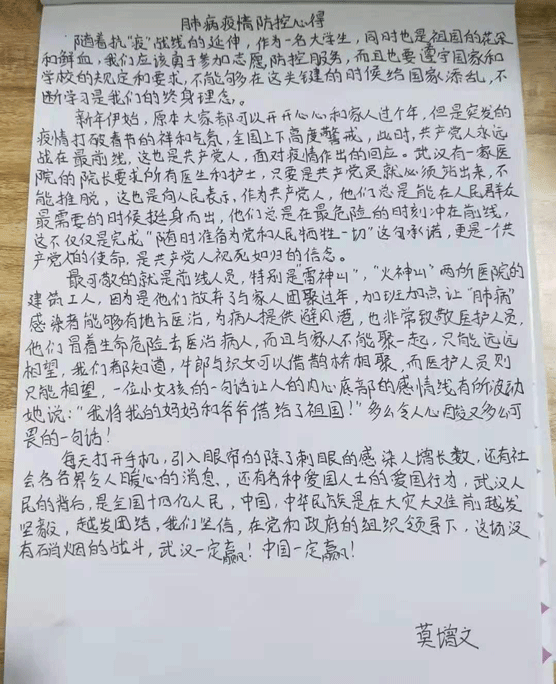 肺病疫情防控心得
随着抗"疫"战线的延伸，作为一名大学生，同时也是祖国的花朵
和鲜血，我们应该勇于参加志愿防控服务，而且也要遵守国家和
学校的规定和要求，不能够在这关键的时候给国家添乱，不
断学习是我们的终身理念。
新年伊始，原本大家都可以开开心心和家人过个年，但是突发的
疫情打破春节的祥和气氛，全国上下高度警戒，此时，共产党人永远
战在最前线，这也是共产党人，面对疫情作出的回应。武汉有一家医
院的院长要求所有医生和护士，只要是共产党员就必须站出来，不
能推脱，这也是向人民表示，作为共产党人，他们总是能在人民群众
最需要的时候挺身而出，他们总是在最危险的时刻冲在前线，
这不仅仅是完成"随时准备为党和人民牺牲一切"这句承诺，更是一个共
产党人的使命，是共产党人视死如归的信念。
最可敬的就是前线人员，特别是"雷神山"，"火神山"两所医院的
建筑工人，因为是他们放弃了与家人团聚过年，加班加点让"肺病"
感染者能够有地方医治，为病人提供避风港，也非常致敬医护人员，
他们冒着生命危险去医治病人，而且与家人不能聚一起，只能远远
相望，我们都知道，牛郎与织女可以借鹊桥相聚，而医护人员则
只能相望，一位小女孩的一句话让人的内心底部的感情线有所波动
她说："我将我的妈妈和爷爷借给了祖国！"多么令人心酸又多么可
畏的一句话！
每天打开手机，引入眼帘的除了刺眼的感染人增长数，还有社
会各各界令人暖心的消息，还有各种爱国人士的爱国行为，武汉人
民的背后，是全国十四亿人民，中国，中华民族是在大灾大难前越发
坚毅，越发团结，我们坚信，在党和政府的组织领导下，这场没
有硝烟的战斗，武汉一定赢！中国一定赢！
莫增文